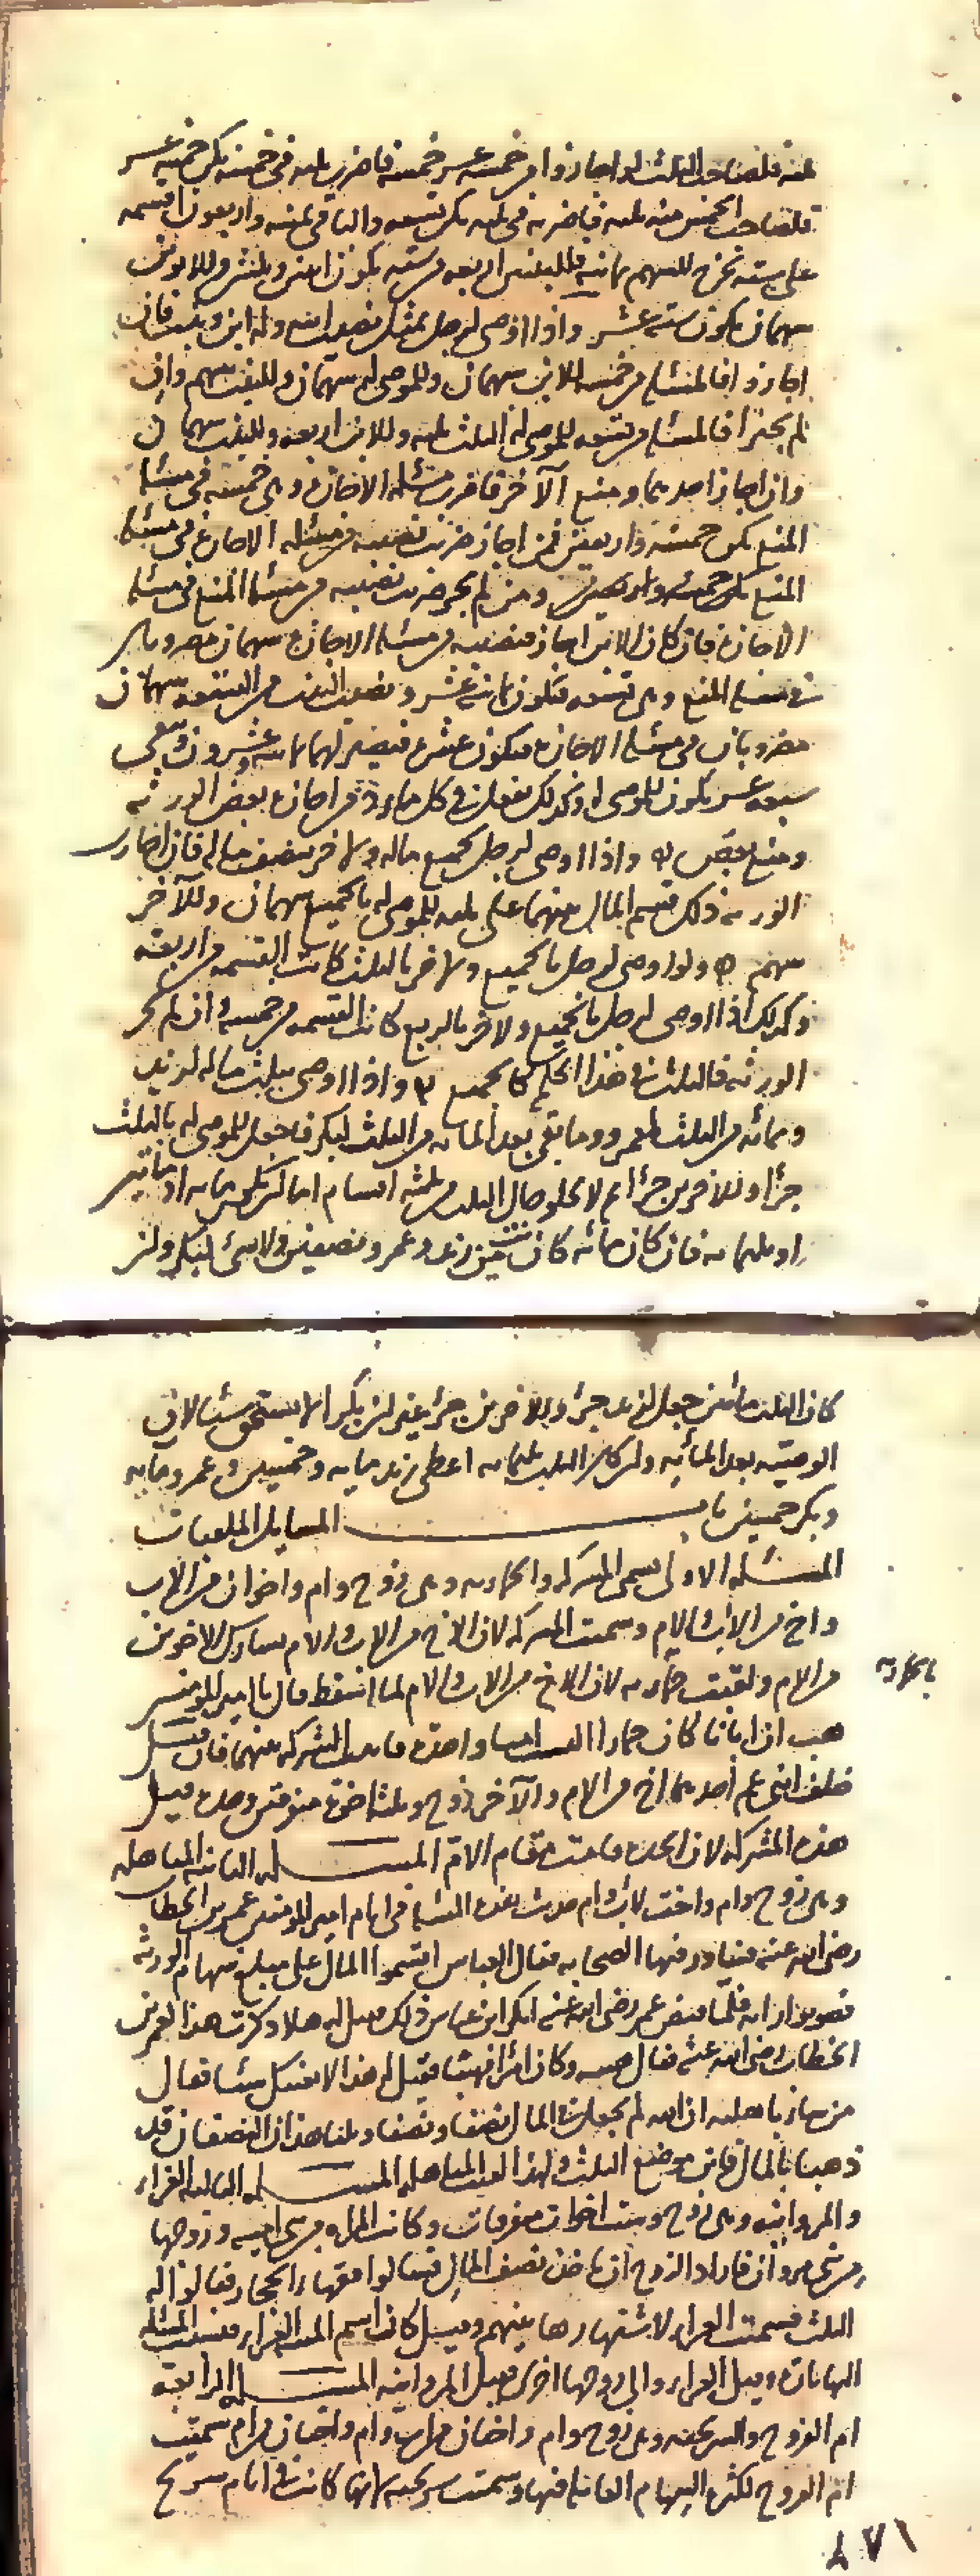 ثلثه فلصاحب الثلث لو اجازوا من خمسه عشر خمسه فاضرب ثلثه في خمسه يكن خمسه عشر
فلصاحب الخمس منه ثلثه فاضربه في ثلثه يكن تسعه والباقي ثمنيه واربعون اقسمه
على سته تخرج للسهم ثمانيه للبنتين اربعه من سته يكون اثنين وثلثين وللابوين
سهمان يكون سته عشر واذا اوصى لرجل بمثل نصيب ابنه وله ابن وبنت فان
اجازوا فالمسئله من خمسه للابن سهمان وللموصى له سهمان وللبنت سهم وان
لم يجيزا فالمسئله من تسعه للموصى له الثلث ثلثه وللابن اربعه وللبنت سهمان
وان اجاز احدهما ومنع الآخر فاضرب مسئله الاجازه وهي خمسه في مسئله
المنع يكن خمسه واربعين فمن اجاز ضربت نصيبه من مسئله الاجازه في مسئله
المنع يكن خمسه واربعين ومن لم يجز ضربت نصيبه من مسئله المنع في مسئله
الاجازه فان كان الابن اجاز فنصيبه من مسئله الاجازه سهمان مضروبان
في مسئله المنع وهي تسعه فتكون ثمانيه عشر ونصيب البنت من التسعه سهمان
مضروبان في مسئله الاجازه فتكون عشره فيصير لهما ثمانيه وعشرون وتبقى
سبعه عشر يكون للموصى له وكذلك تفعل في كل ما ورد من اجازه بعض الورثه
ومنع بعض واذا اوصى لرجل بجميع ماله ولاخر بنصف ماله فان اجازت
الورثه ذلك قسم المال بينهما على ثلثه للموصى له بالجميع سهمان وللآخر
سهم ولو اوصى لرجل بالجميع ولاخر بالثلث كانت القسمه من اربعه
وكذلك اذا اوصى لرجل بالجميع ولاخر بالربع كانت القسمه من خمسه وان لم تجز
الورثه فالثلث في هذا الحكم كالجميع واذا اوصى بثلث ماله لزيد
وبمائه من الثلث لعمرو وما بقي بعد المائه من الثلث لبكر فاجعل للموصى له بالثلث
جزأ وللاخرين جزأ ثم لا يخلو حال الثلث من ثلثه اقسام اما ان يكون مايه او مائتين
او ثلثمايه فان كان مائه كان بين زيد وعمرو نصفين ولا شئ لبكر ولن
كان الثلث مائتين جعل لزيد جزؤ وللاخرين جزؤ غير ان بكرا لا يستحق شيئا لان
الوصيه بعد المائه ولن كان الثلث ثلثمايه اعطى زيد مايه وخمسين وعمرو مايه
وبكر خمسين باب المسايل الملقبات
المسئله الاولى تسمى المشركه والحماريه وهي زوج وام واخوان من الام
واخ من الاب والام وسميت المشركه لان الاخ من الاب والام يشارك الاخوين
من الام ولقبت حماريه لان الاخ من الاب والام لما اسقط قال يا امير المؤمنين
بالحماريه
هب ان ابانا كان حمارا اليست امنا واحده فاثبت الشركه بينهما فان قيل
خلف ابني عم احدهما اخ من الام والآخر زوج وثلث اخوه متفرقين وجده قيل
هذه المشركه لان الجده قامت مقام الام المسئله الثانيه المباهله
وهي زوج وام واخت لاب وام حدثت هذه المسئله في ايام امير المؤمنين عمر بن الخطاب
رضي الله عنه فشاور فيها الصحابه فقال العباس اقسموا المال على مبلغ سهام الورثه
فصوبوا رايه فلما قبض عمر رضي الله عنه انكر ابن عباس ذلك فقيل له هلا ذكرت هذا لعمر بن
الخطاب رضي الله عنه فقال هبته وكان امرا مهيبا فقيل له هذا لا يغنيك شيئا فقال
من شاء باهلته ان الله لم يجعل في المال نصفا ونصفا وثلثا هذان النصفان قد
ذهبا بالمال فاين موضع الثلث ولهذا لقبت المباهله المسئله الثالثه الغراء
والمروانيه وهي زوج وست اخوات متفرقات وكانت المراه من بني اميه وزوجها
من بني مروان فاراد الزوج ان ياخذ نصف المال فسالوا فقهاء الحجاز فقالوا له
الثلث فسميت الغراء لاشتهارها بينهم وقيل كان اسم الميته الغراء فنسبت المسئله
اليها تاره وقيل الغراء والى زوجها اخرى فقيل المروانيه المسئله الرابعه
ام الفروخ والشريحيه وهي زوج وام واختان من اب وام واختان من ام سميت
ام الفروخ لكثره السهام العائله فيها وسميت شريحيه لانها كانت في ايام شريح
١٧٨